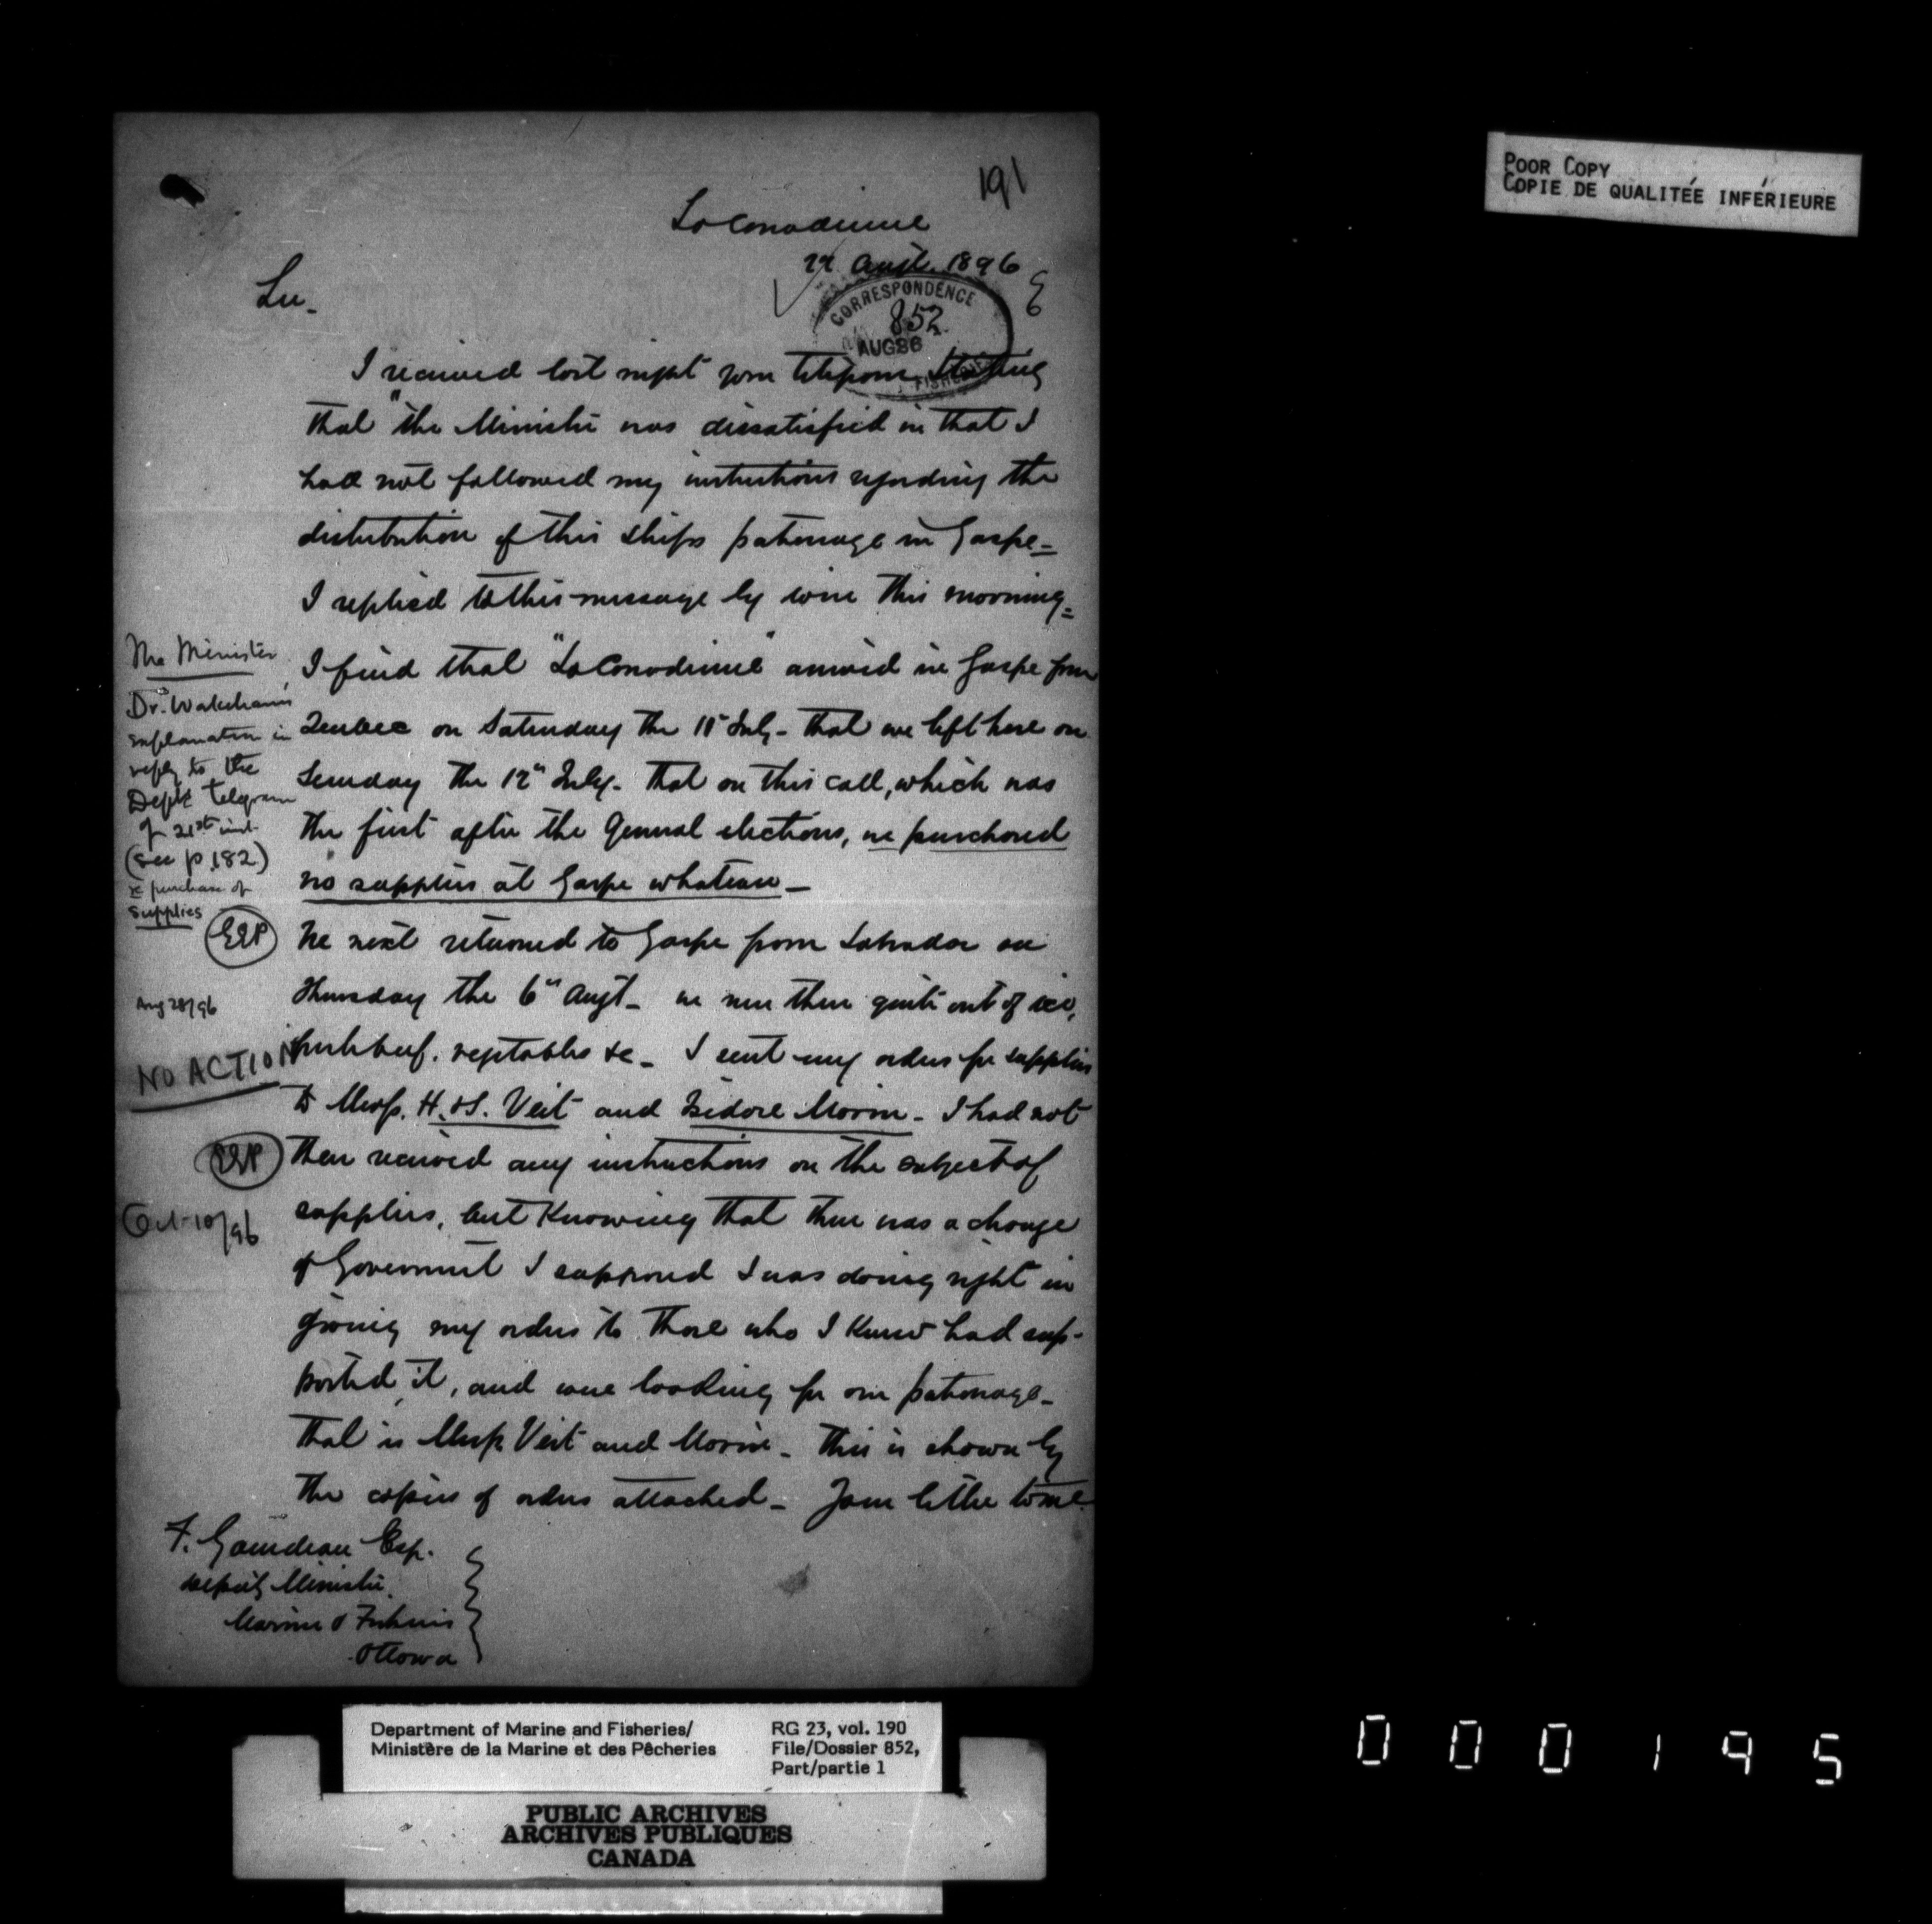 191
La Canadienne
22 Augt. 1896
Sir.
CORRESPONDENCE
852
AUG 26
FISHERIES
I received last night your telegram stating
that "the Minister was dissatisfied in that I
had not followed my instructions regarding the
distribution of this ships patronage in Gaspe_
I replied to this message by wire this morning_
I find that "La Canadienne" arrived in Gaspe from
Quebec on Saturday the 11th July_ that we left here on
Sunday the 12th July_ that on this call, which was
the first after the General elections, we purchased
no supplies at Gaspe whatever_
We next returned to Gaspe from Labrador on
Thursday the 6th Augt_ we were then quite out of ice,
fresh beef, vegetables &c_ I sent my orders for supplies
to Messrs. H. & J. Veit and Isidore Morin_ I had not
then received any instructions on the subject of
supplies, but knowing that there was a change
of Government I supposed I was doing right in
giving my orders to those who I knew had sup-
ported it, and were looking for our patronage_
that is Messrs Veit and Morin_ This is shown by
the copies of orders attached_ Your letter to me
The Minister
Dr. Wakeham's
explanation in
reply to the
Dept telegram
of 21st inst.
(see p. 182)
re purchase of
supplies
EEP
Aug 28/96
NO ACTION
EEP
Oct 10/96
F. Gourdeau Esq.
Deputy Minister
Marine & Fisheries
Ottawa
POOR COPY
COPIE DE QUALITÉE INFÉRIEURE
Department of Marine and Fisheries/
Ministère de la Marine et des Pêcheries
RG 23, vol. 190
File/Dossier 852,
Part/partie 1
PUBLIC ARCHIVES
ARCHIVES PUBLIQUES
CANADA
000195